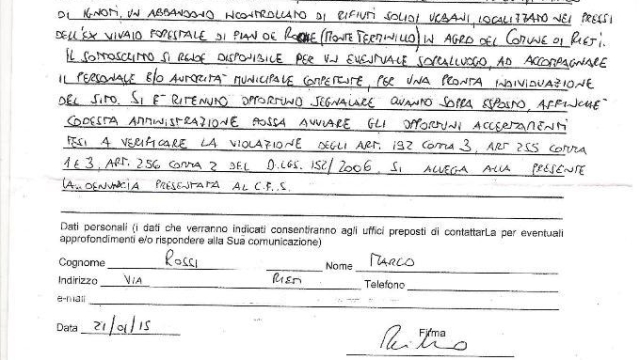 DI IGNOTI, UN ABBANDONO INCONTROLLATO DI RIFIUTI SOLIDI URBANI, LOCALIZZATO NEI PRESSI
DELL'EX VIVAIO FORESTALE DI PIAN DE ROCHE (MONTE TERMINILLO) IN AGRO DEL COMUNE DI RIETI.
IL SOTTOSCRITTO SI RENDE DISPONIBILE PER UN EVENTUALE SOPRALUOGO, AD ACCOMPAGNARE
IL PERSONALE E/O AUTORITA' MUNICIPALE COMPETENTE, PER UNA PRONTA INDIVIDUAZIONE
DEL SITO. SI E' RITENUTO OPPORTUNO SEGNALARE QUANTO SOPRA ESPOSTO, AFFINCHE'
CODESTA AMMINISTRAZIONE POSSA AVVIARE GLI OPPORTUNI ACCERTAMENTI
TESI A VERIFICARE LA VIOLAZIONE DEGLI ART. 192 COMMA 3, ART 255 COMMA
1 E 3, ART. 256 COMMA 2 DEL D.LGS. 152/2006, SI ALLEGA ALLA PRESENTE
LA DENUNCIA PRESENTATA AL C.F.S.
Dati personali (i dati che verranno indicati consentiranno agli uffici preposti di contattarLa per eventuali
approfondimenti e/o rispondere alla Sua comunicazione)
Cognome ROSSI Nome MARCO
Indirizzo VIA RIETI Telefono
e-mail
Data 21/01/15 Firma